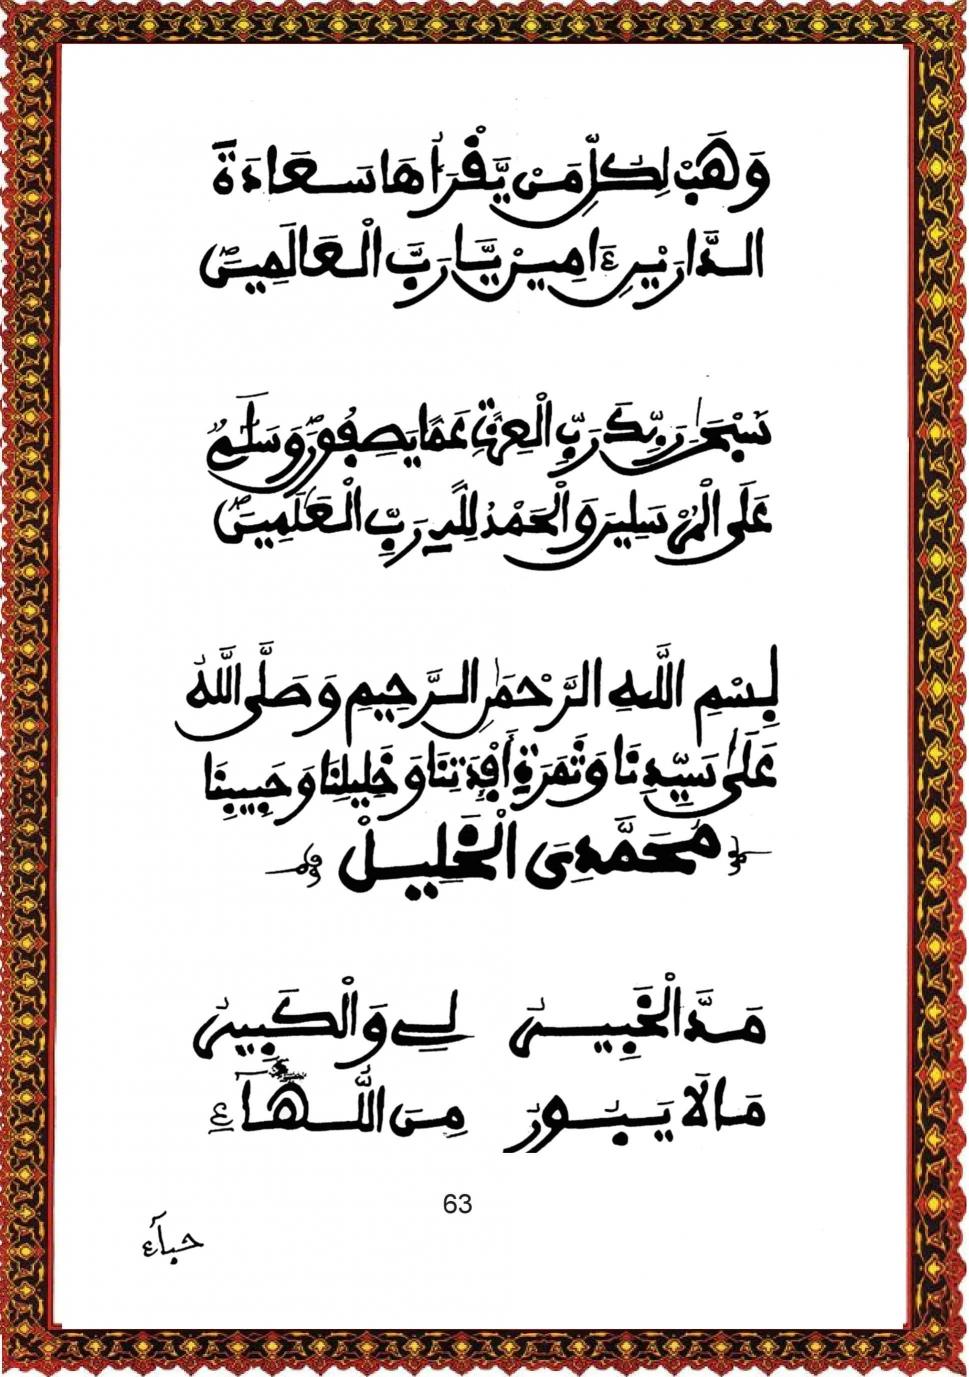 وَهَبْ لِكُلِّ مَن يَّقْرَأهَا سَعَادَةَ
الدَّارَيْنِ ءَامِين يَّا رَبَّ الْعَالَمِينَ
سُبْحَٰنَ رَبِّكَ رَبِّ الْعِزَّةِ عَمَّا يَصِفُونَ وَسَلَٰمٌ
عَلَى الْمُرْسَلِينَ وَالْحَمْدُ لِلَّهِ رَبِّ الْعَٰلَمِينَ
بِسْمِ اللَّهِ الرَّحْمَٰنِ الرَّحِيمِ وَصَلَّى اللَّهُ
عَلَىٰ سَيِّدِنَا وَثَمَرَةِ أَفْئِدَتِنَا وَخَلِيلِنَا وَحَبِيبِنَا
مُحَمَّدِىِ الْخَلِيلْ
مَدَّ الْخَبِيرُ لِي وَالْكَبِيرُ
مَا لَا يَبُورُ مِنَ اللُّهَاءِ
63
حباءً